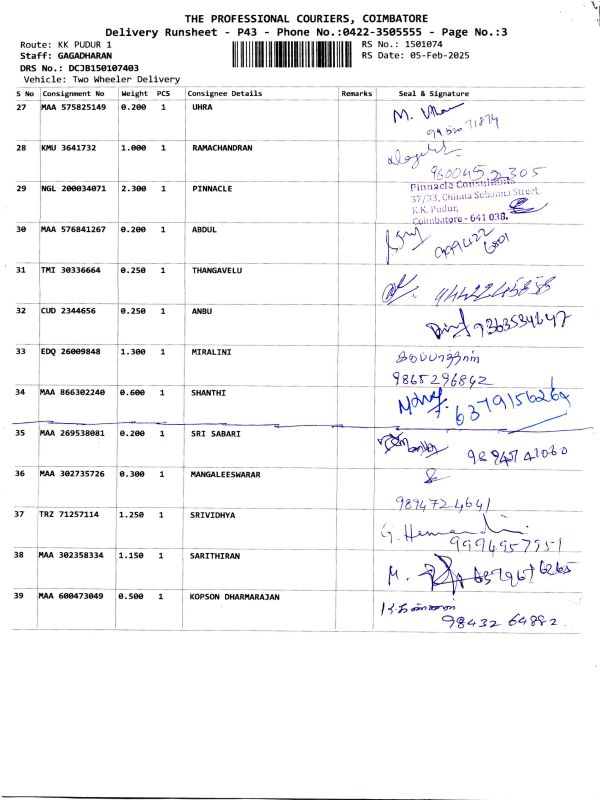 THE PROFESSIONAL COURIERS, COIMBATORE
Delivery Runsheet - P43 - Phone No.:0422-3505555 - Page No.:3
Route: KK PUDUR 1 RS No.: 1501074
Staff: GAGADHARAN RS Date: 05-Feb-2025
DRS No.: DCJB150107403
Vehicle: Two Wheeler Delivery
S No Consignment No Weight PCS Consignee Details Remarks Seal & Signature
27 MAA 575825149 0.200 1 UHRA M.
28 KMU 3641732 1.000 1 RAMACHANDRAN
29 NGL 200034071 2.300 1 PINNACLE
Pinnacle Consultants
37/33, Chinna Subanna Street,
K.K. Pudur,
Coimbatore - 641 038.
30 MAA 576841267 0.200 1 ABDUL
31 TMI 30336664 0.250 1 THANGAVELU
32 CUD 2344656 0.250 1 ANBU
33 EDQ 26009848 1.300 1 MIRALINI
9865296842
34 MAA 866302240 0.600 1 SHANTHI
6379156269
35 MAA 269538081 0.200 1 SRI SABARI
36 MAA 302735726 0.300 1 MANGALEESWARAR
9894724641
37 TRZ 71257114 1.250 1 SRIVIDHYA
9994957951
38 MAA 302358334 1.150 1 SARITHIRAN M.
39 MAA 600473049 0.500 1 KOPSON DHARMARAJAN
98432 64882